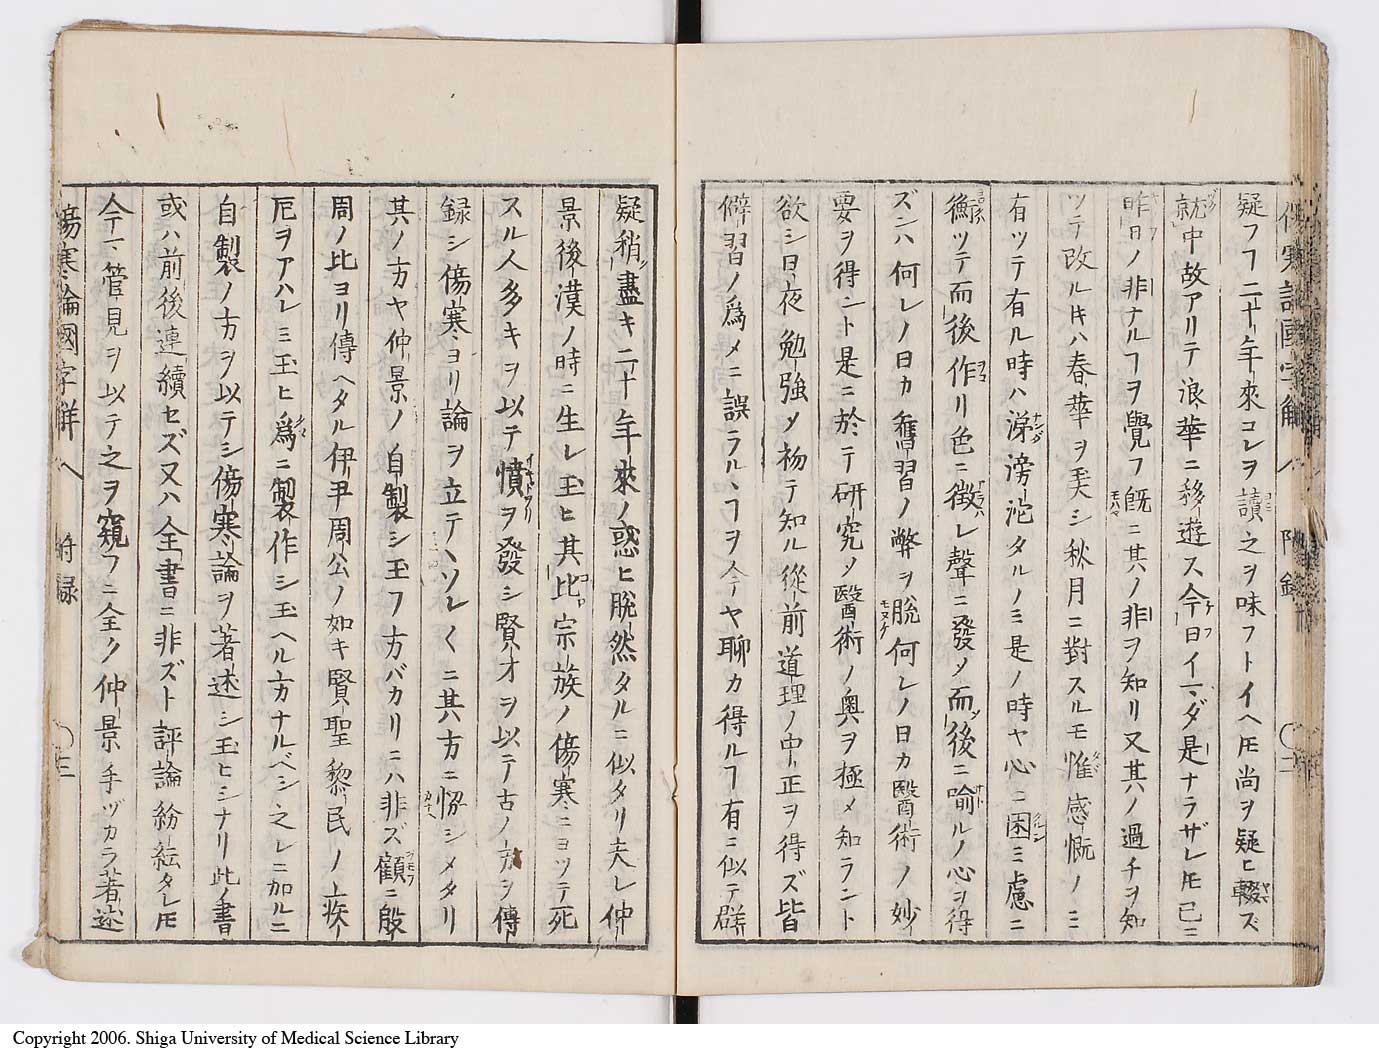 傷寒論國字解 八 附録 ○二
疑フヿ二十年來コレヲ讀之ヲ味フトイヘ𪜈尚ヲ疑ヒ輟ズ
就中故アリテ浪華ニ移遊ス今日イマダ是ナラザレ𪜈已ニ
昨日ノ非ナルヿヲ覺フ既ニ其ノ非ヲ知リ又其ノ過チヲ知
ツテ改ル𪜈ハ春華ヲ美シ秋月ニ對スルモ惟感慨ノミニ
有ツテ有ル時ハ涕滂沱タルノミ是ノ時ヤ心ニ困ミ慮ニ
衡ツテ而後作リ色ニ徴レ聲ニ發ノ而後ニ喩ルノ心ヲ得
ズンハ何レノ日カ舊習ノ弊ヲ脱何レノ日カ醫術ノ妙
要ヲ得ント是ニ於テ研究ノ醫術ノ奥ヲ極メ知ラント
欲シ日夜勉強メ初テ知ル從前道理ノ中正ヲ得ズ皆
僻習ノ爲メニ誤ラルヽヿヲ今ヤ聊カ得ルヿ有ニ似テ群
疑稍盡キ二十年來ノ惑ヒ脱然タルニ似タリ夫レ仲
景後漢ノ時ニ生レ玉ヒ其比宗族ノ傷寒ニヨツテ死
スル人多キヲ以テ憤ヲ發シ賢才ヲ以テ古ノ方ヲ傳
録シ傷寒ヨリ論ヲ立テヽソレ〱ニ其方ニ 悩シメタリ
其ノ方ヤ仲景ノ自製シ玉フ方バカリニハ非ズ顧ニ殷
周ノ比ヨリ傳ヘタル伊尹周公ノ如キ賢聖黎民ノ疾
厄ヲアハレミ玉ヒ爲ニ製作シ玉ヘル方ナルベシ之レニ加ルニ
自製ノ方ヲ以テシ傷寒論ヲ著述シ玉ヒシナリ此ノ書
或ハ前後連續セズ又ハ全書ニ非ズト評論紛紜タレ𪜈
今マ管見ヲ以テ之ヲ窺フニ全ク仲景手ヅカラ著述
傷寒論國字解 八 附録 ○三
Copyright 2006. Shiga University of Medical Science Library